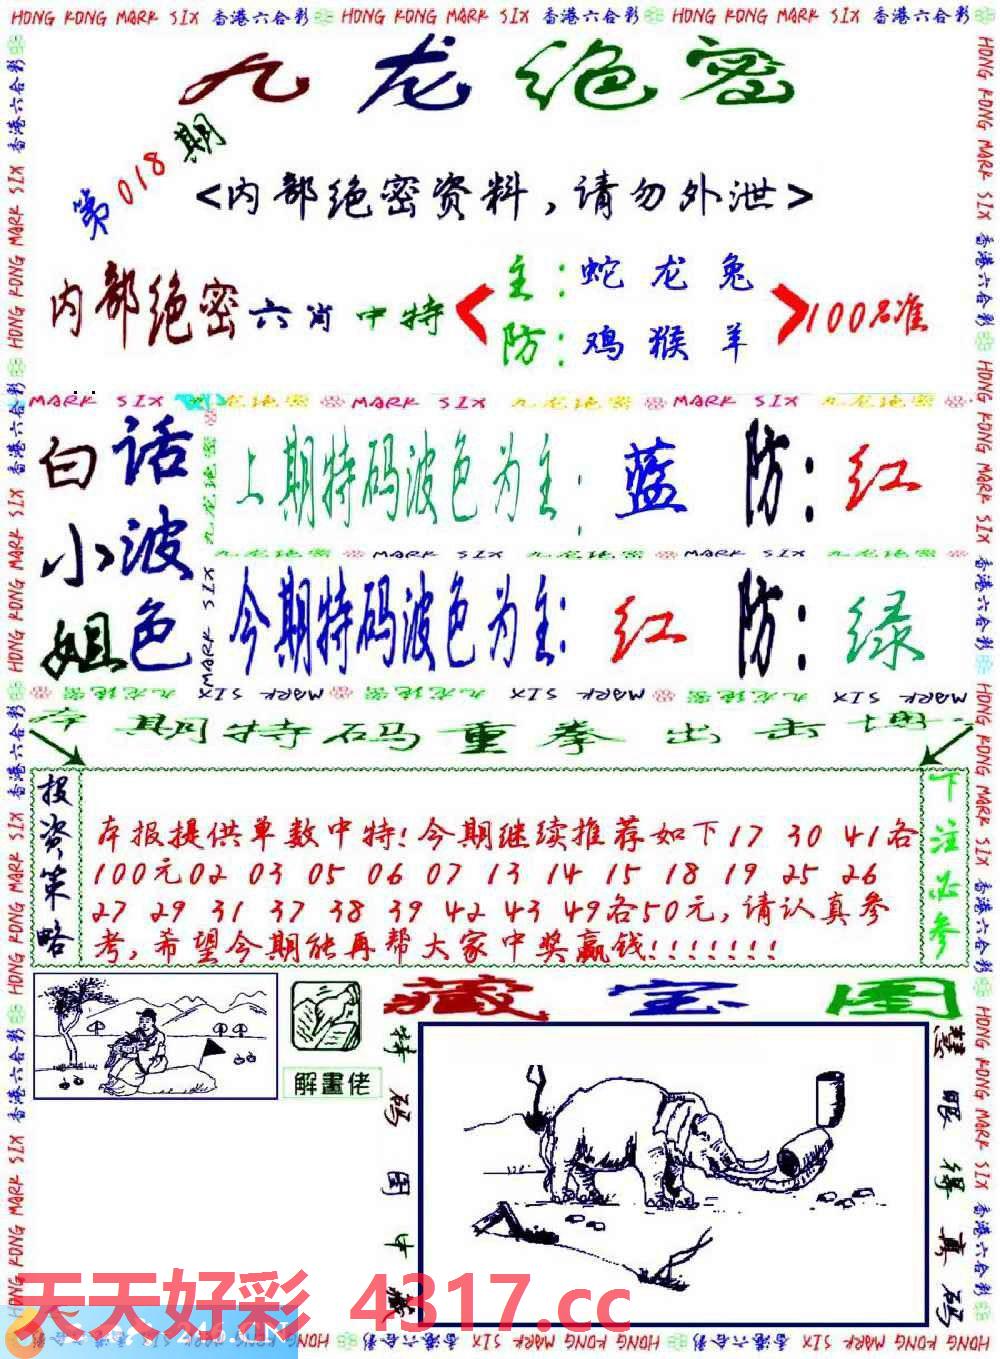 HONG KONG MARK SIX 香港六合彩 HONG KONG MARK SIX 香港六合彩 HONG KONG MARK SIX 香港六合彩
九龙绝密
第018期
<内部绝密资料,请勿外泄>
内部绝密六肖中特
主:蛇龙兔
防:鸡猴羊
100%准
MARK SIX 九龙绝密 MARK SIX 九龙绝密 MARK SIX 九龙绝密
白小姐
话波色
上期特码波色为主:蓝 防:红
九龙绝密 MARK SIX 九龙绝密 MARK SIX 九龙绝密
今期特码波色为主:红 防:绿
MARK SIX 九龙绝密 MARK SIX 九龙绝密 MARK SIX 九龙绝密
本期特码重拳出击
投资策略
本报提供单数中特!今期继续推荐如下17 30 41各
100元02 03 05 06 07 13 14 15 18 19 25 26
27 29 31 37 38 39 42 43 49各50元,请认真参
考,希望今期能再帮大家中奖赢钱!!!!!!!
下注必参
藏宝图
解畫佬
特码图中藏
慧眼得真码
天天好彩 4317.cc
HONG KONG MARK SIX 香港六合彩 HONG KONG MARK SIX 香港六合彩